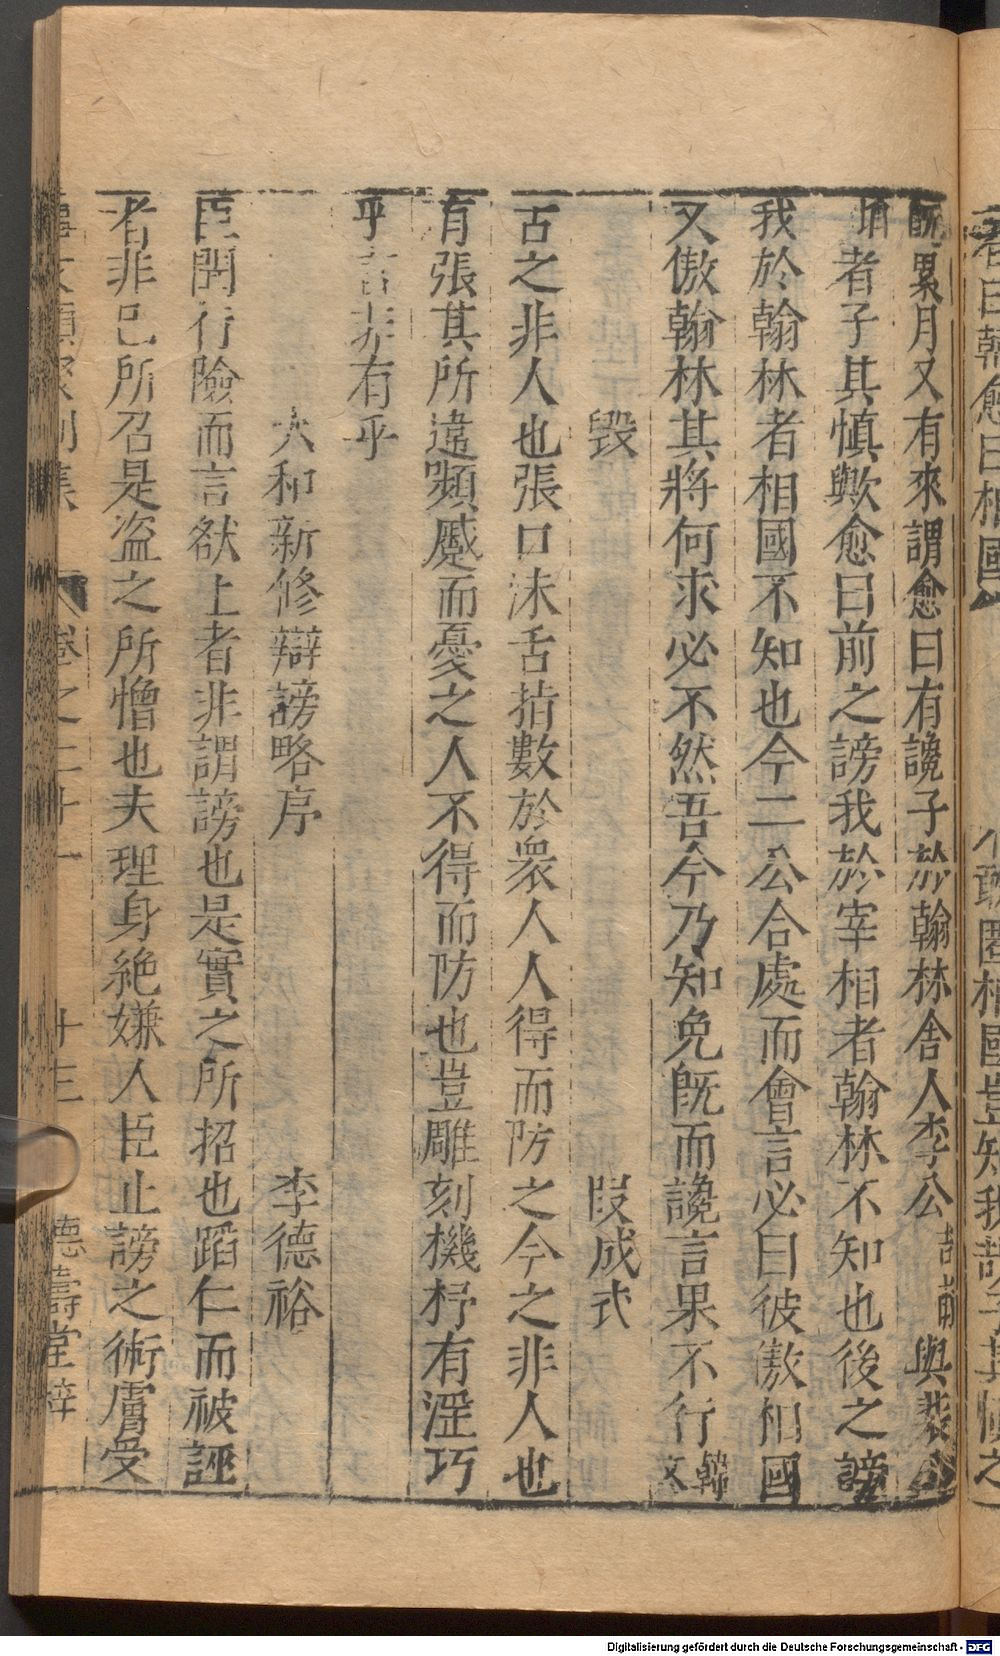 既累月又有來謂愈曰有讒子於翰林舍人李公吉甫與裴公
垍者子其慎歟愈曰前之謗我於宰相者翰林不知也後之謗
我於翰林者相國不知也今二公合處而會言必曰彼傲相國
又傲翰林其將何求必不然吾今乃知免旣而讒言果不行韓文
毀 段成式
古之非人也張口沫舌指數於衆人人得而防之今之非人也
有張其所違嚬蹙而憂之人不得而防也豈雕刻機杼有淫巧
乎言非有乎
大和新修辯謗略序 李德裕
臣聞行險而言欲上者非謂謗也是實之所招也蹈仁而被誣
者非己所召是盜之所憎也夫理身絶嫌人臣止謗之術膚受
事文類聚別集 卷之二十一 十三 德壽堂梓
Digitalisierung gefördert durch die Deutsche Forschungsgemeinschaft - DFG